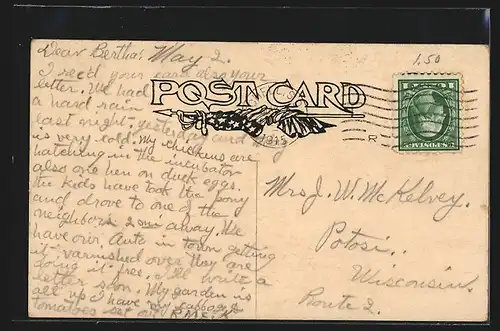 Dear Bertha: May 2.
I rec'd your card also your
letter. We had
a hard rain
last night. yesterday and
is very cold. My chickens are
hatching in the incubator
also one hen on duck eggs.
the kids have took the pony
and drove to one of the
neighbors 2 mi away. We
have our Auto in town getting
it varnished over they are
doing it free. I'll write a
letter soon. My garden is
all up I have my cabbage
tomatoes set out
POST CARD
1.50
1
R
Mrs J. W. McKelvey.
Potosi.
Wisconsin.
Route 2.